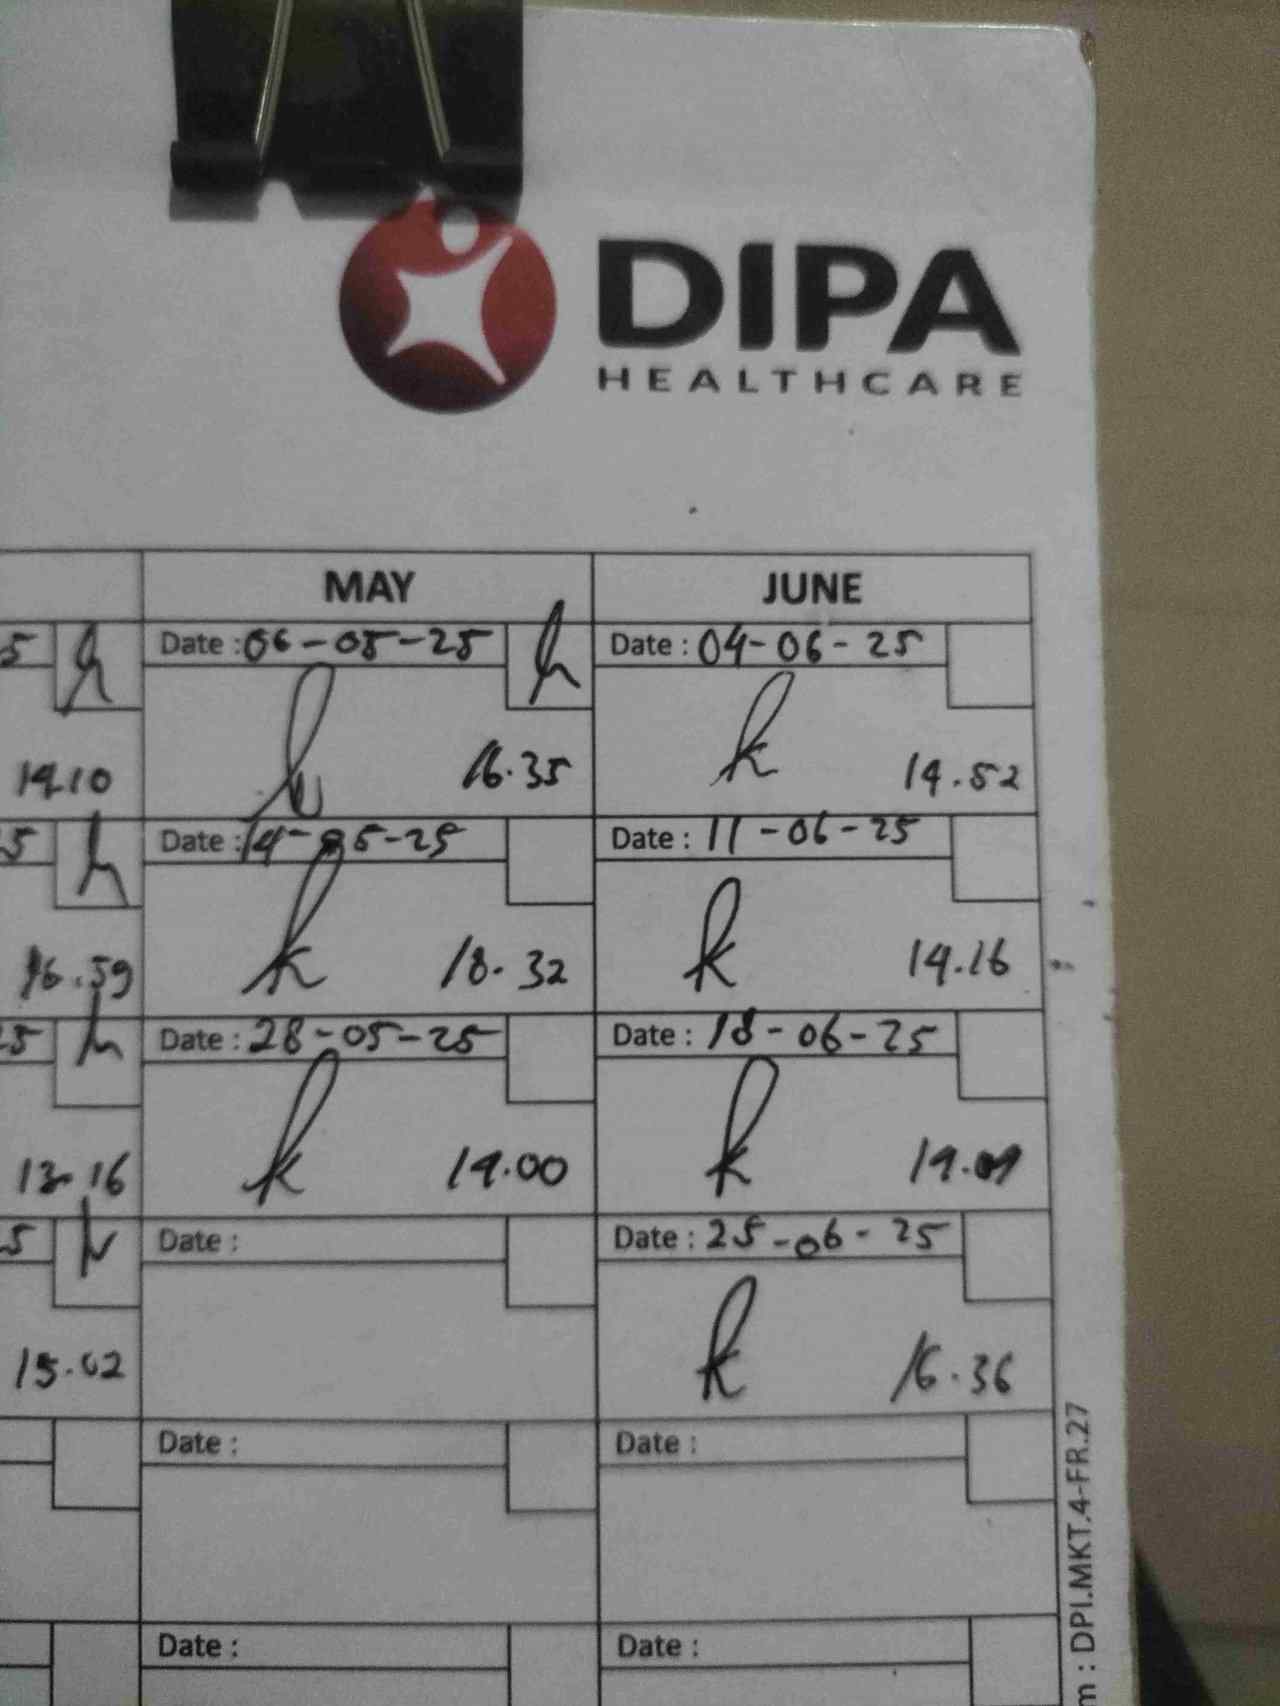 DIPA
HEALTHCARE
MAY JUNE
5 Date : 06-05-25 Date : 04-06-25
14.10 16.35 14.52
25 Date : 14-05-25 Date : 11-06-25
16.59 18.32 14.16
25 Date : 28-05-25 Date : 18-06-25
13.16 14.00
5 Date : Date : 25-06-25
15.02 16.36
Date : Date :
Date : Date :
m : DPI.MKT.4-FR.27